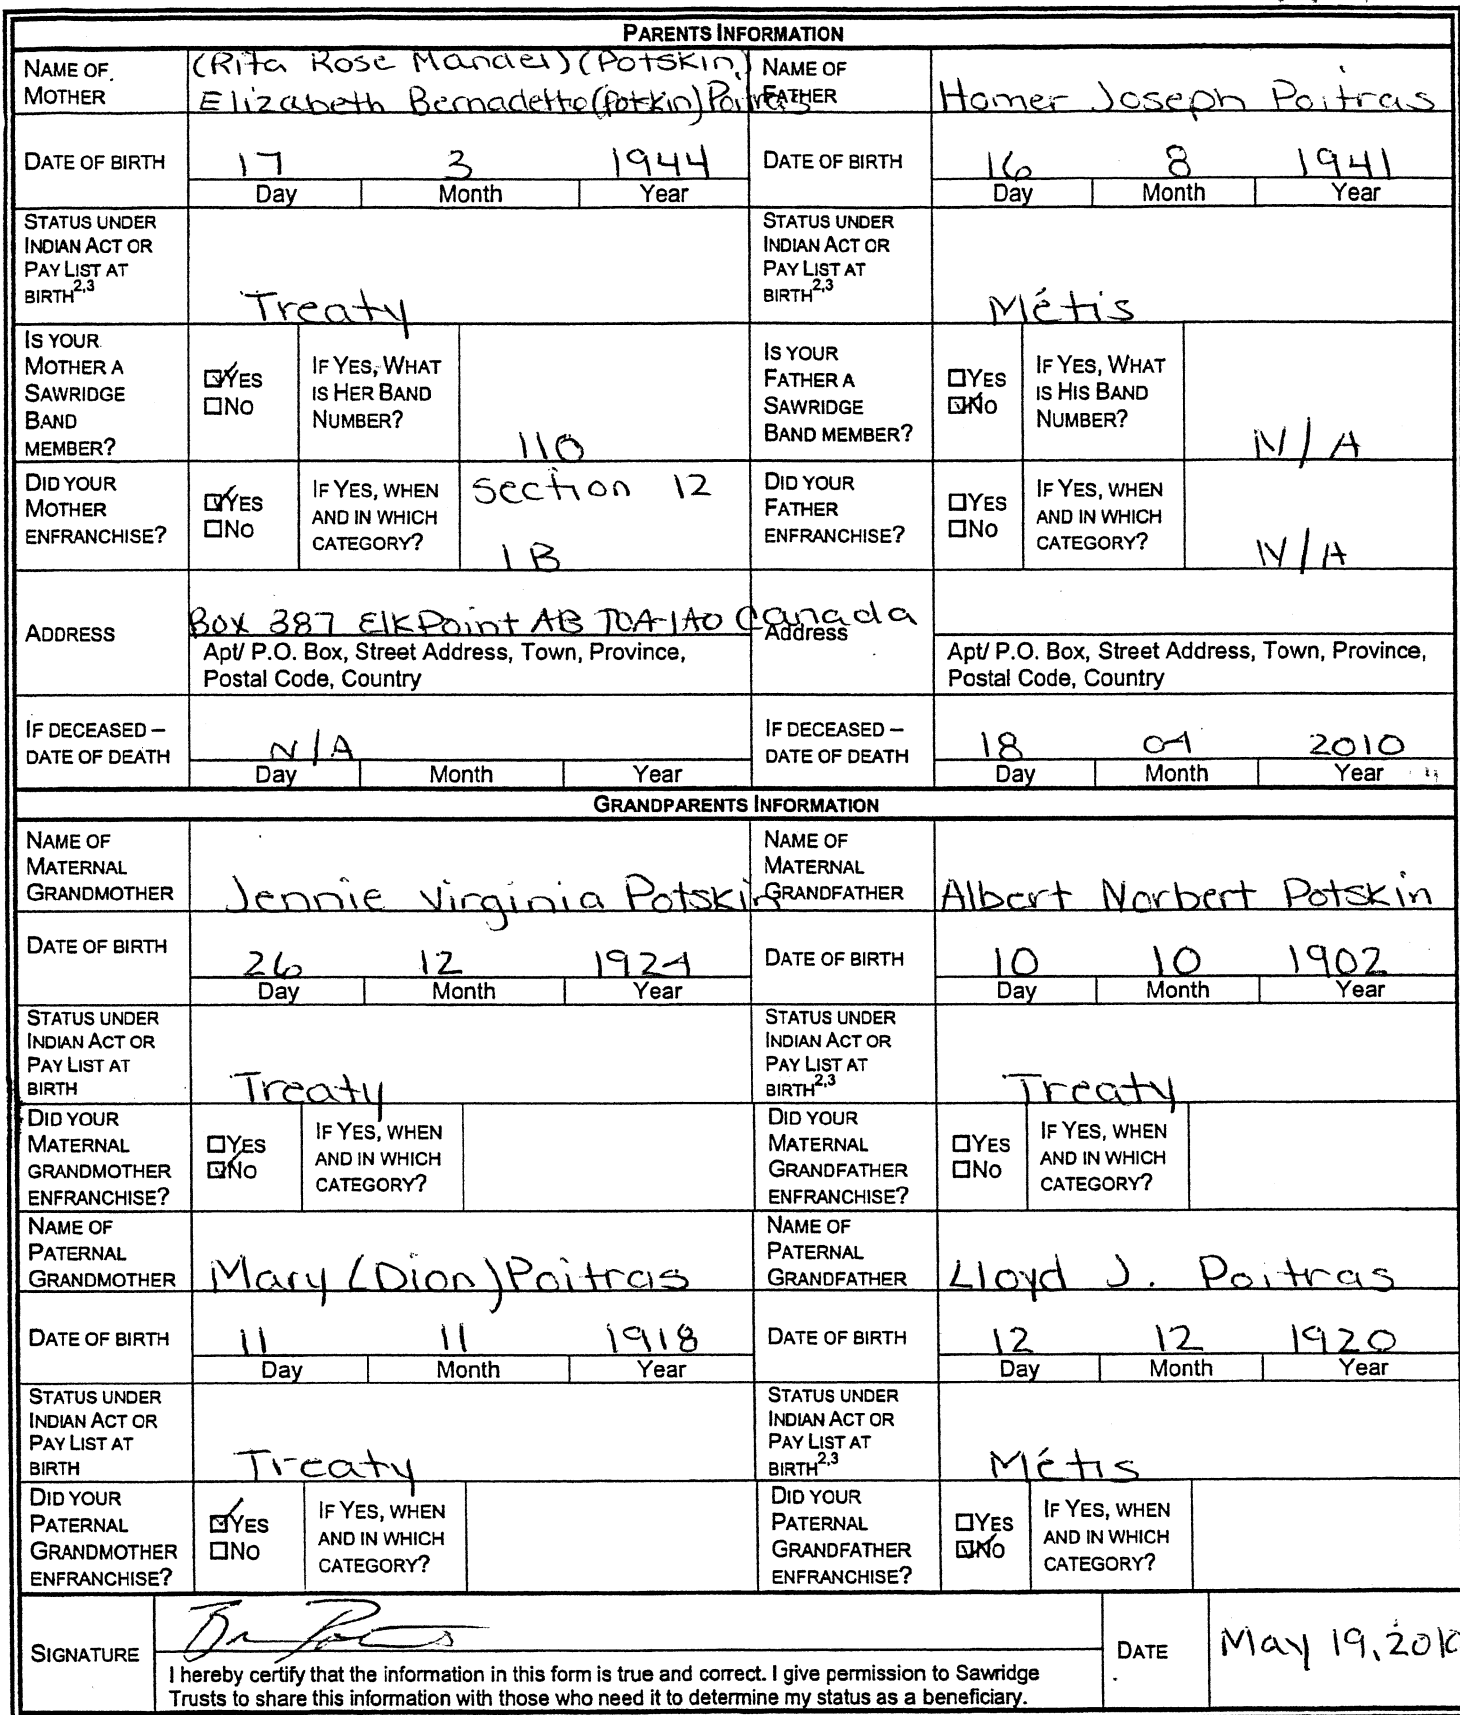 PARENTS INFORMATION
NAME OF MOTHER
(Rita Rose Mandel) (Potskin,)
Elizabeth Bernadette (potkin) Poitras
NAME OF FATHER
Homer Joseph Poitras
DATE OF BIRTH
17 3 1944
Day Month Year
DATE OF BIRTH
16 8 1941
Day Month Year
STATUS UNDER INDIAN ACT OR PAY LIST AT BIRTH2,3
Treaty
STATUS UNDER INDIAN ACT OR PAY LIST AT BIRTH2,3
Métis
IS YOUR MOTHER A SAWRIDGE BAND MEMBER?
☑YES
☐NO
IF YES, WHAT IS HER BAND NUMBER?
110
IS YOUR FATHER A SAWRIDGE BAND MEMBER?
☐YES
☑NO
IF YES, WHAT IS HIS BAND NUMBER?
N/A
DID YOUR MOTHER ENFRANCHISE?
☑YES
☐NO
IF YES, WHEN AND IN WHICH CATEGORY?
Section 12
1B
DID YOUR FATHER ENFRANCHISE?
☐YES
☐NO
IF YES, WHEN AND IN WHICH CATEGORY?
N/A
ADDRESS
Box 387 Elk Point AB T0A-1A0 Canada
Apt/ P.O. Box, Street Address, Town, Province,
Postal Code, Country
Address
Apt/ P.O. Box, Street Address, Town, Province,
Postal Code, Country
IF DECEASED – DATE OF DEATH
N/A
Day Month Year
IF DECEASED – DATE OF DEATH
18 04 2010
Day Month Year
GRANDPARENTS INFORMATION
NAME OF MATERNAL GRANDMOTHER
Jennie Virginia Potskin
NAME OF MATERNAL GRANDFATHER
Albert Norbert Potskin
DATE OF BIRTH
26 12 1924
Day Month Year
DATE OF BIRTH
10 10 1902
Day Month Year
STATUS UNDER INDIAN ACT OR PAY LIST AT BIRTH
Treaty
STATUS UNDER INDIAN ACT OR PAY LIST AT BIRTH2,3
Treaty
DID YOUR MATERNAL GRANDMOTHER ENFRANCHISE?
☐YES
☑NO
IF YES, WHEN AND IN WHICH CATEGORY?
DID YOUR MATERNAL GRANDFATHER ENFRANCHISE?
☐YES
☐NO
IF YES, WHEN AND IN WHICH CATEGORY?
NAME OF PATERNAL GRANDMOTHER
Mary (Dion) Poitras
NAME OF PATERNAL GRANDFATHER
Lloyd J. Poitras
DATE OF BIRTH
11 11 1918
Day Month Year
DATE OF BIRTH
12 12 1920
Day Month Year
STATUS UNDER INDIAN ACT OR PAY LIST AT BIRTH
Treaty
STATUS UNDER INDIAN ACT OR PAY LIST AT BIRTH2,3
Métis
DID YOUR PATERNAL GRANDMOTHER ENFRANCHISE?
☑YES
☐NO
IF YES, WHEN AND IN WHICH CATEGORY?
DID YOUR PATERNAL GRANDFATHER ENFRANCHISE?
☐YES
☑NO
IF YES, WHEN AND IN WHICH CATEGORY?
SIGNATURE
I hereby certify that the information in this form is true and correct. I give permission to Sawridge
Trusts to share this information with those who need it to determine my status as a beneficiary.
DATE
May 19, 2010